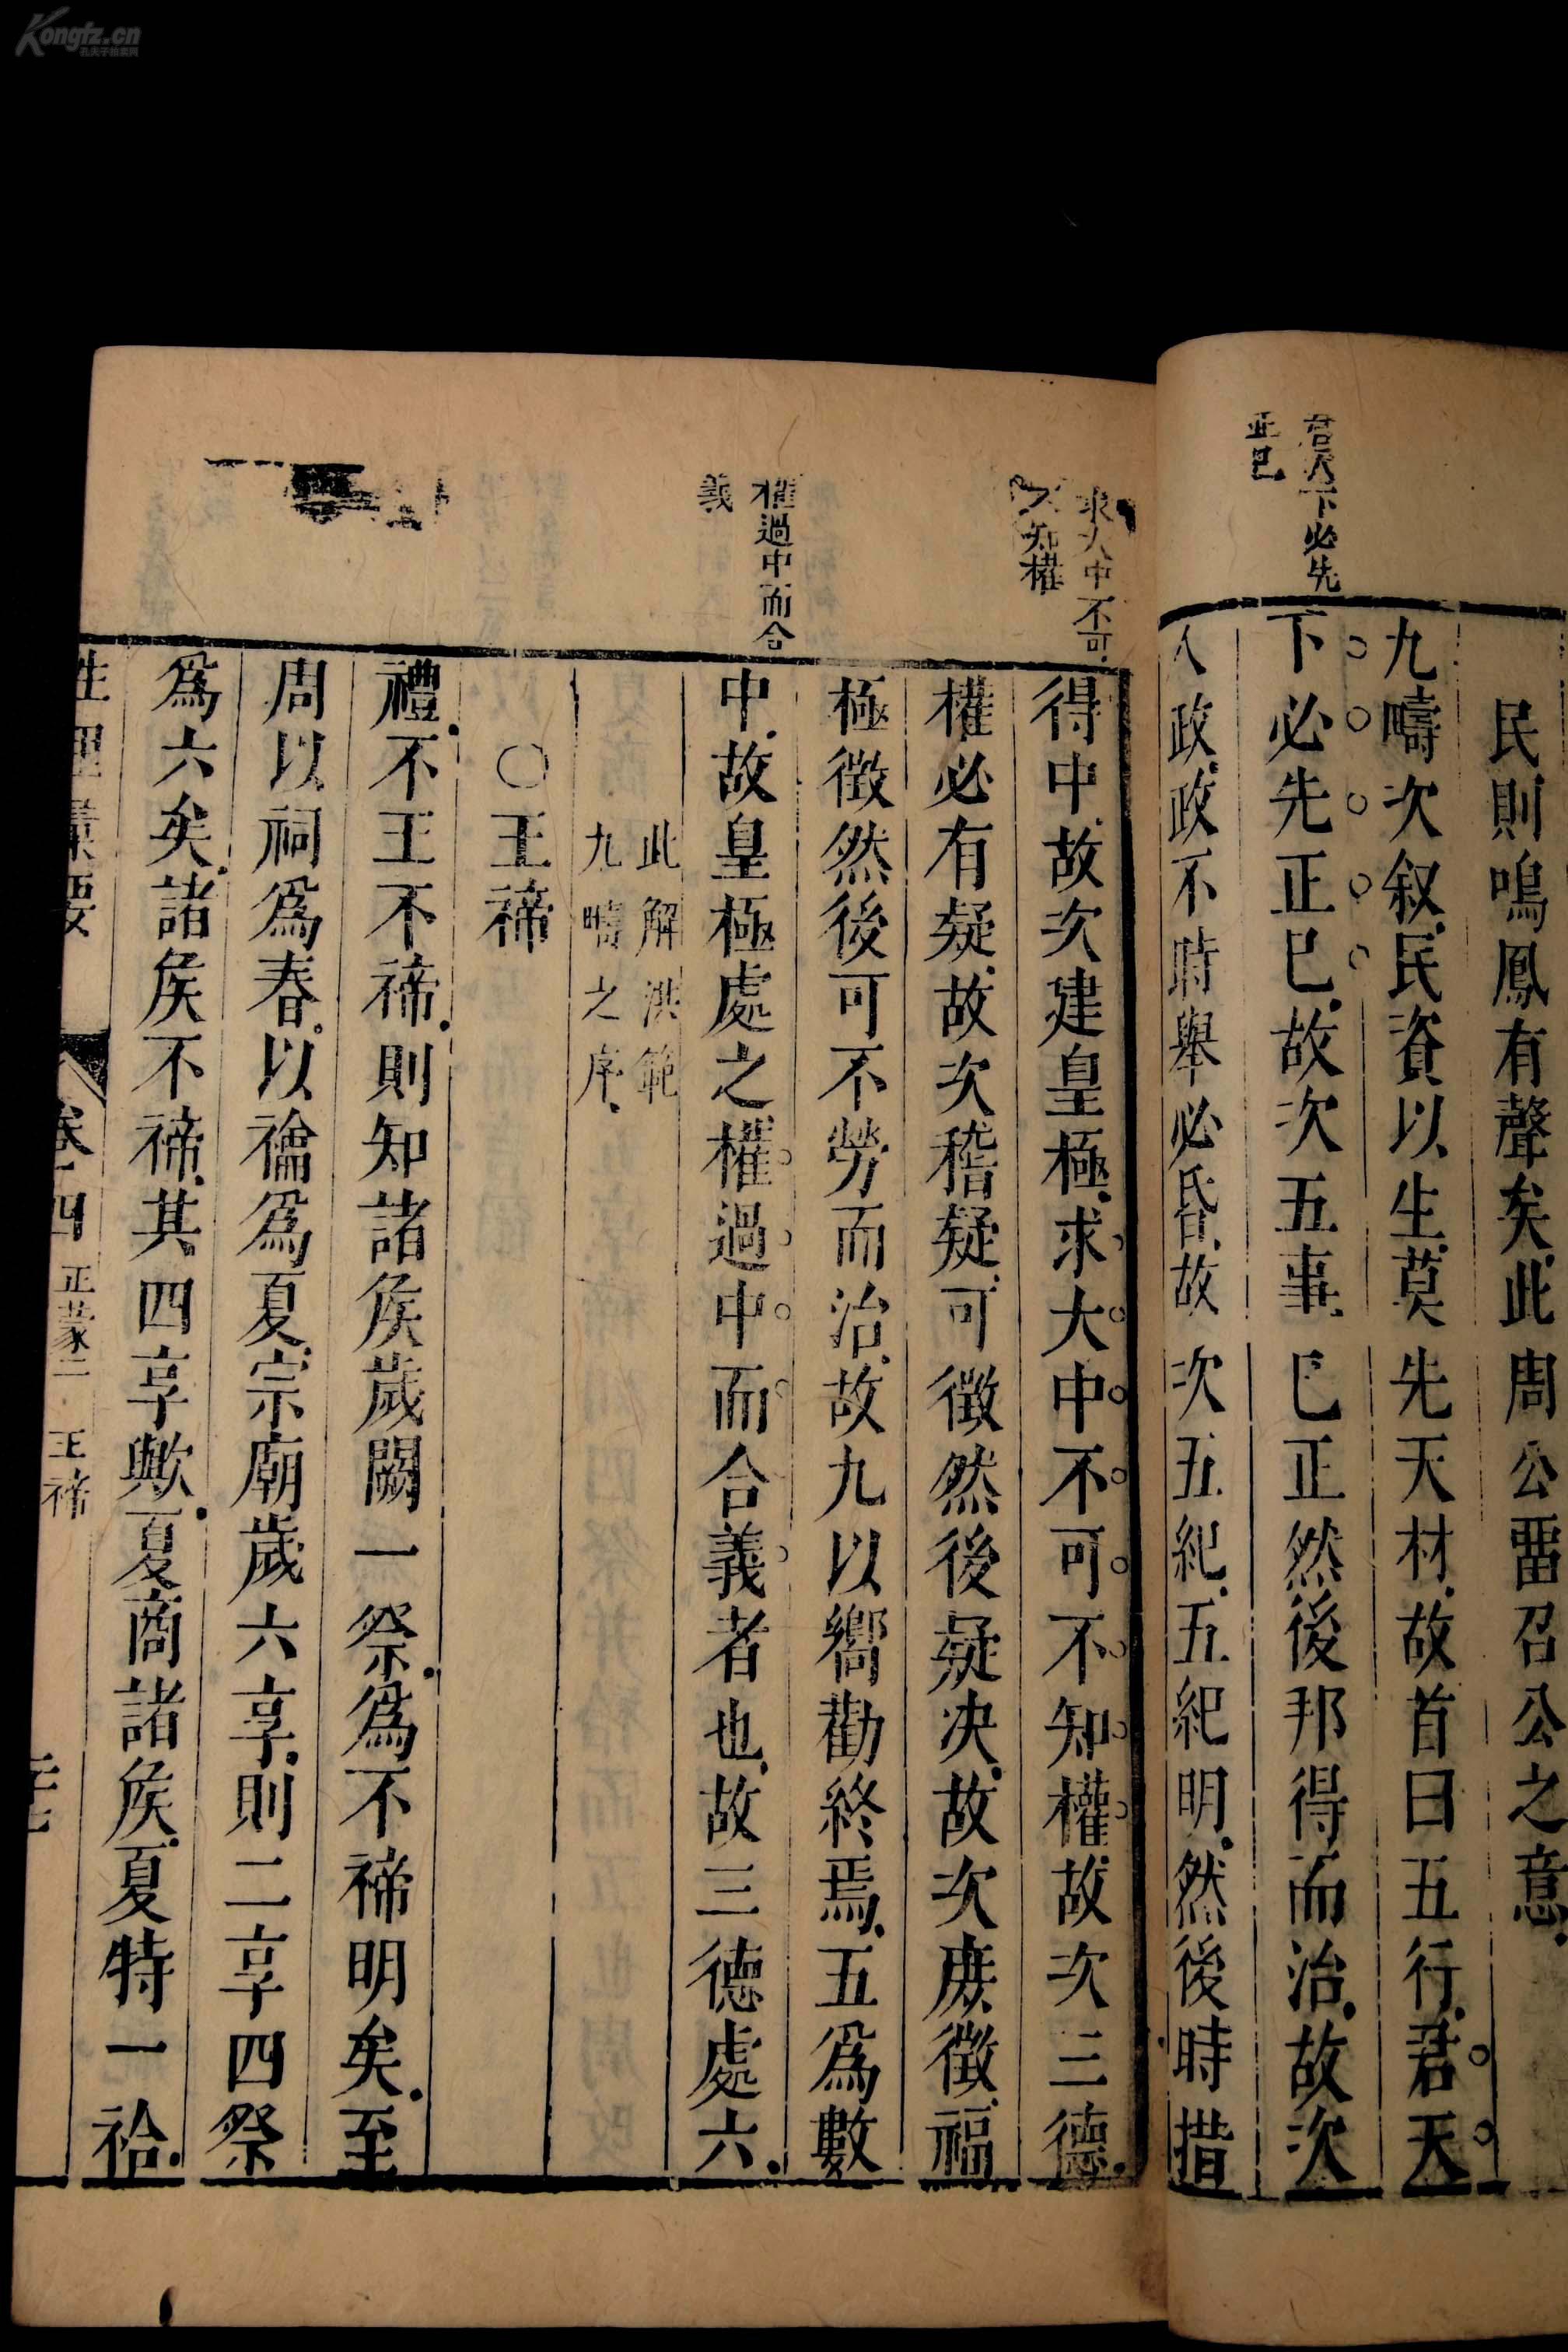 Kongfz.cn
孔夫子旧书网
君天下必先
正己
民則鳴鳳有聲矣此周公畱召公之意
九疇次叙民資以生莫先天材故首曰五行君天
下必先正已故次五事已正然後邦得而治故次
八政政不時舉必昏故次五紀五紀明然後時措
求大中不可
不知權
權過中而合
義
得中故次建皇極求大中不可不知權故次三德
權必有疑故次稽疑可徵然後疑决故次庶徵福
極徵然後可不勞而治故九以嚮勸終焉五爲數
中故皇極處之權過中而合義者也故三德處六
此解洪範
九疇之序
○王禘
禮不王不禘則知諸侯歲闕一祭爲不禘明矣至
周以祠爲春以禴爲夏宗廟歲六享則二享四祭
爲六矣諸侯不禘其四享歟夏商諸侯夏特一祫
性理彙要
卷十四 正蒙二 王禘